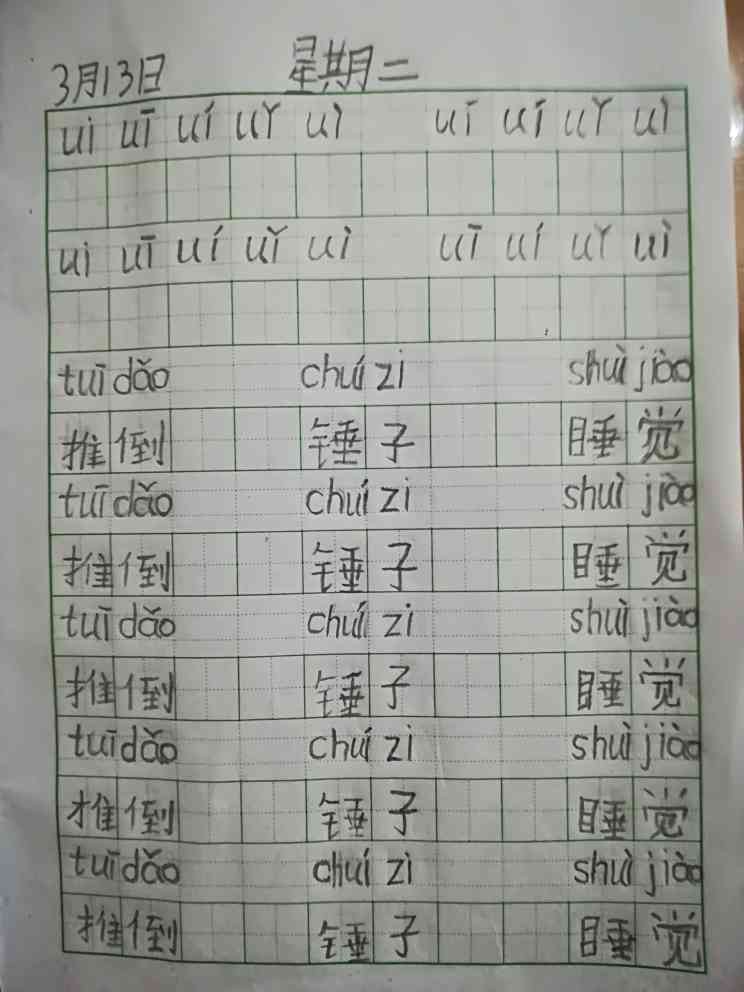 3月13日 星期二
ui uī uí uǐ uì uī uí uǐ uì
ui uī uí uǐ uì uī uí uǐ uì
tuī dǎo chuí zi shuì jiào
推倒 锤子 睡觉
tuī dǎo chuí zi shuì jiào
推倒 锤子 睡觉
tuī dǎo chuí zi shuì jiào
推倒 锤子 睡觉
tuī dǎo chuí zi shuì jiào
推倒 锤子 睡觉
tuī dǎo chuí zi shuì jiào
推倒 锤子 睡觉